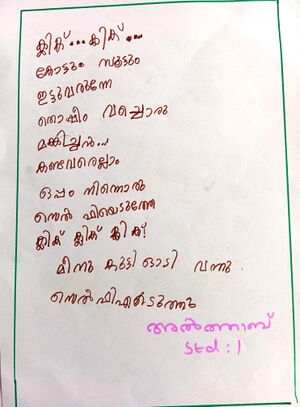 ക്ലിക്...ക്ലിക്...
കോട്ടും സൂട്ടും
ഇട്ടുവരുന്നേ
തൊപ്പീം വച്ചൊരു
മങ്കിച്ചൻ...
കണ്ടവരെല്ലാം
ഒപ്പം നിന്നൊൽ
സെൽ ഫിയെടുത്തേ
ക്ലിക് ക്ലിക് ക്ലിക്!
മീനു കുട്ടി ഓടി വന്നു
സെൽഫിഎടുത്തു
Std : 1